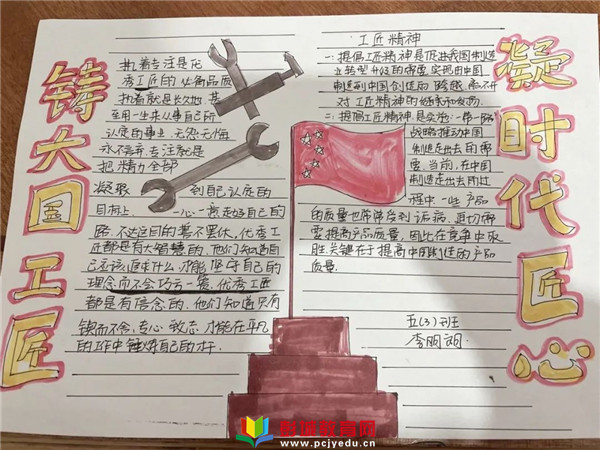 铸大国工匠
执着专注是优
秀工匠的必备品质
执着就是长久地,甚
至用一生来从事自己所
认定的事业,无怨无悔
永不放弃专注就是
把精力全部
凝聚 到自己认定的
目标上. 一心一意走好自己的
路,不达目的甚不罢休,优秀工
匠都是有大智慧的,他们知道自
己应该追求什么,才能坚守自己的
理念而不会巧丢一簧.优秀工匠
都是有信念的,他们知道只有
锲而不舍,专心致志,才能在平凡
的工作中锤炼自己的才干.
工匠精神
一:提倡工匠精神是促进我国制造
业转型升级的需要,实现由中国
制造到中国创造的跨越,离不开
对工匠精神的继承和发扬.
二:提倡工匠精神是实施一带一路
战略推动中国
制造走出去的需
要.当前,在中国
制造走出去的过
程中一些产品
的质量也常常受到诟病,迫切需
要提高产品质量.因此在竞争中取
胜关键在于提高中国制造的产品
质量.
五(3)班
凝时代匠心
荆进教育网
www.pcjyedu.cn